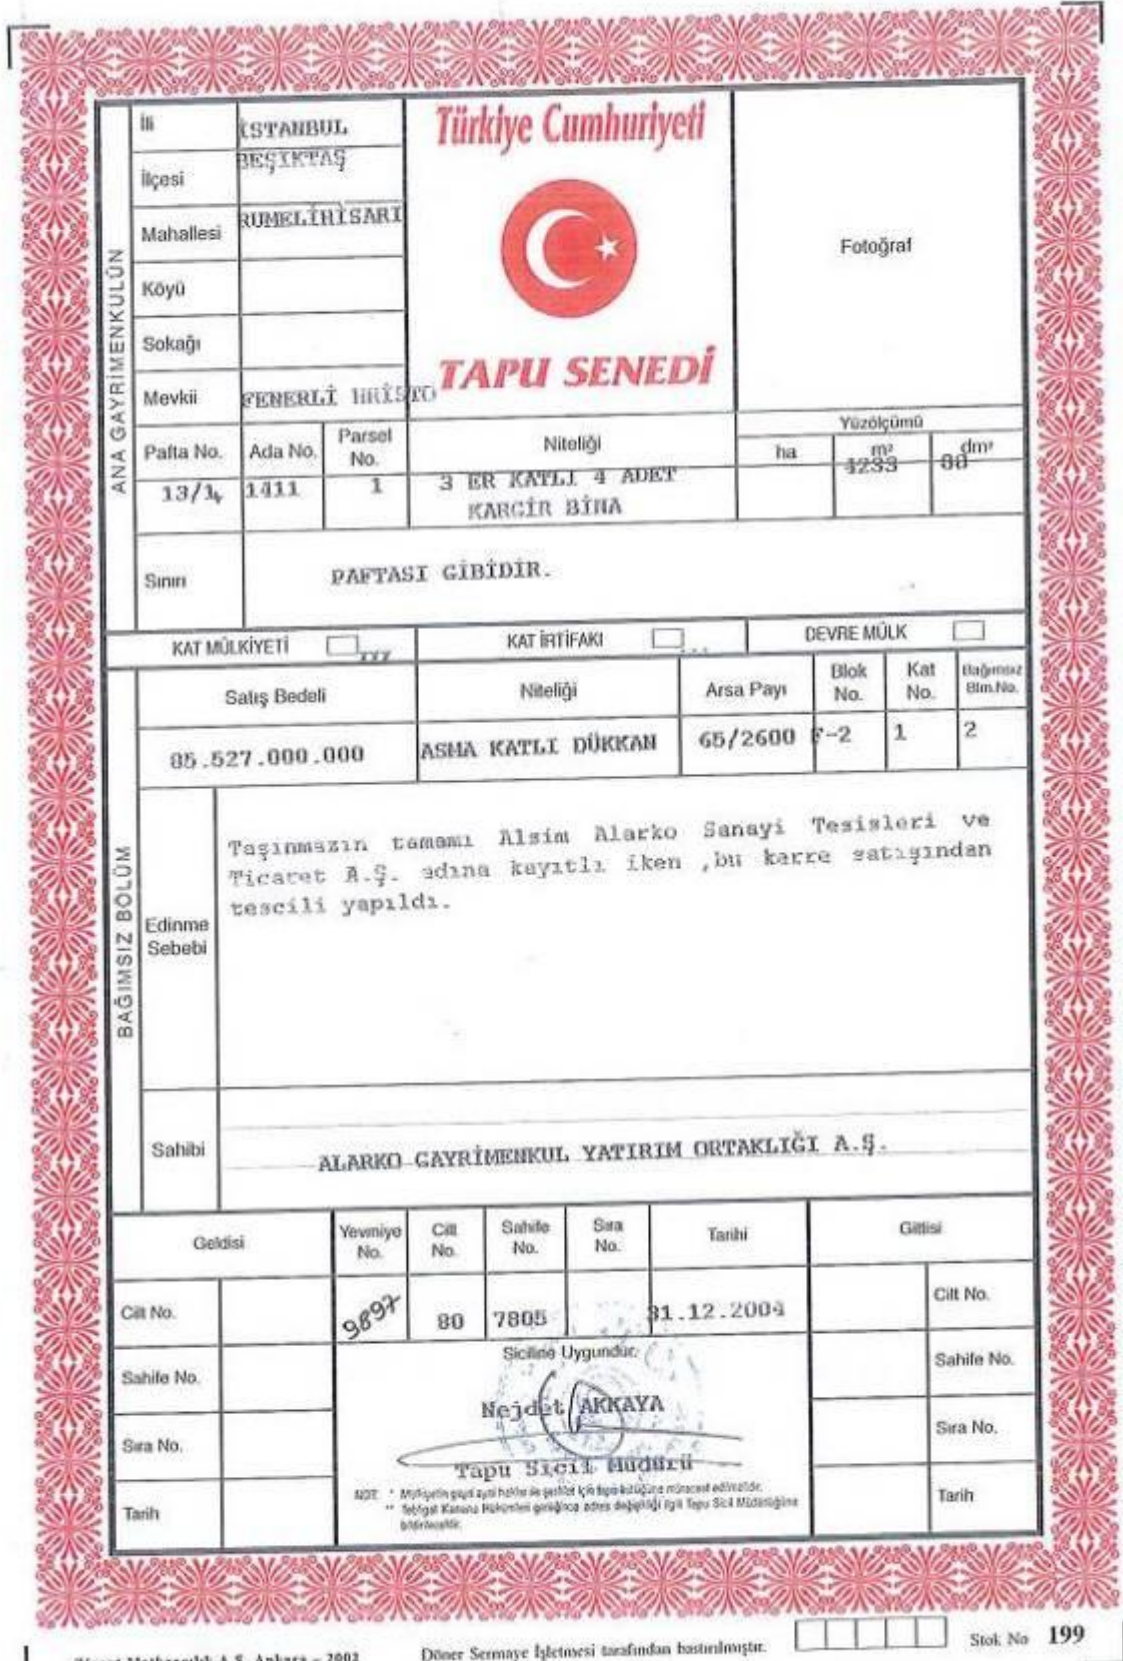 Türkiye Cumhuriyeti
TAPU SENEDİ
Fotoğraf
ANA GAYRİMENKULÜN
İli İSTANBUL
İlçesi BEŞİKTAŞ
Mahallesi RUMELİHİSARI
Köyü
Sokağı
Mevkii FENERLİ HRİSTO
Pafta No. Ada No. Parsel No. Niteliği Yüzölçümü
ha m² dm²
13/14 1411 1 3 ER KATLI 4 ADET
KARGİR BİNA
Sınırı PAFTASI GİBİDİR.
KAT MÜLKİYETİ KAT İRTİFAKI DEVRE MÜLK
BAĞIMSIZ BÖLÜM
Satış Bedeli Niteliği Arsa Payı Blok No. Kat No. Bağımsız Blm.No.
85.527.000.000 ASMA KATLI DÜKKAN 65/2600 F-2 1 2
Edinme Sebebi
Taşınmazın tamamı Alsim Alarko Sanayi Tesisleri ve
Ticaret A.Ş. adına kayıtlı iken ,bu karre satışından
tescili yapıldı.
Sahibi
ALARKO GAYRİMENKUL YATIRIM ORTAKLIĞI A.Ş.
Geldisi Yevmiye No. Cilt No. Sahife No. Sıra No. Tarihi Gittisi
Cilt No. 9897 80 7805 31.12.2004 Cilt No.
Siciline Uygundur.
Sahife No. Sahife No.
Nejdet AKKAYA
Sıra No. Sıra No.
Tapu Sicil Müdürü
NOT: * Mülkiyetin gayri ayni haklar ile şerhler için tapu kütüğüne müracaat edilmelidir.
** Tebligat Kanunu Hükümleri gereğince adres değişikliği ilgili Tapu Sicil Müdürlüğüne
bildirilecektir.
Tarih Tarih
A.Ş. Ankara – 2002
Döner Sermaye İşletmesi tarafından bastırılmıştır.
Stok No 199